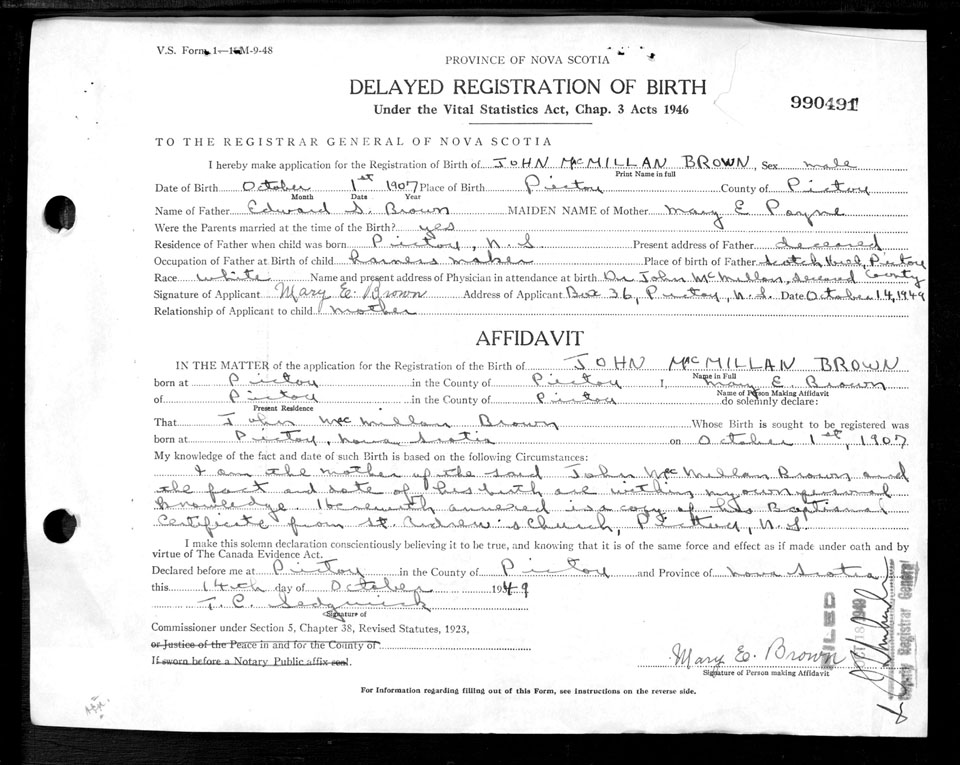 V.S. Form 1—15M-9-48
PROVINCE OF NOVA SCOTIA
DELAYED REGISTRATION OF BIRTH
Under the Vital Statistics Act, Chap. 3 Acts 1946
990491
TO THE REGISTRAR GENERAL OF NOVA SCOTIA
I hereby make application for the Registration of Birth of JOHN McMILLAN BROWN, Sex male
Print Name in full
Date of Birth October 1st 1907 Place of Birth Pictou County of Pictou
Month Date Year
Name of Father Edward S. Brown MAIDEN NAME of Mother Mary E Payne
Were the Parents married at the time of the Birth? yes
Residence of Father when child was born Pictou, N.S Present address of Father deceased
Occupation of Father at Birth of child harness maker Place of birth of Father Scotch Hill, Pictou County
Race white Name and present address of Physician in attendance at birth Dr John McMillan, deceased
Signature of Applicant Mary E. Brown Address of Applicant Box 36, Pictou, N.S. Date October 14, 1949
Relationship of Applicant to child mother
AFFIDAVIT
IN THE MATTER of the application for the Registration of the Birth of JOHN McMILLAN BROWN
Name in Full
born at Pictou in the County of Pictou I, Mary E. Brown
Name of Person Making Affidavit
of Pictou in the County of Pictou do solemnly declare:
Present Residence
That John McMillan Brown Whose Birth is sought to be registered was
born at Pictou, Nova Scotia on October 1st, 1907
My knowledge of the fact and date of such Birth is based on the following Circumstances:
I am the mother of the said John McMillan Brown and
the fact and date of his birth are within my own personal
knowledge. Herewith annexed is a copy of his Baptismal
Certificate from St. Andrew's Church, Pictou, N.S.
I make this solemn declaration conscientiously believing it to be true, and knowing that it is of the same force and effect as if made under oath and by
virtue of The Canada Evidence Act.
Declared before me at Pictou in the County of Pictou and Province of Nova Scotia
this 14th day of October 1949
T. C. Sedgwick
Signature of
Commissioner under Section 5, Chapter 38, Revised Statutes, 1923,
or Justice of the Peace in and for the County of
If sworn before a Notary Public affix seal.
Mary E. Brown
Signature of Person making Affidavit
FILED
OCT 18 1949
Deputy Registrar General
For Information regarding filling out of this Form, see instructions on the reverse side.